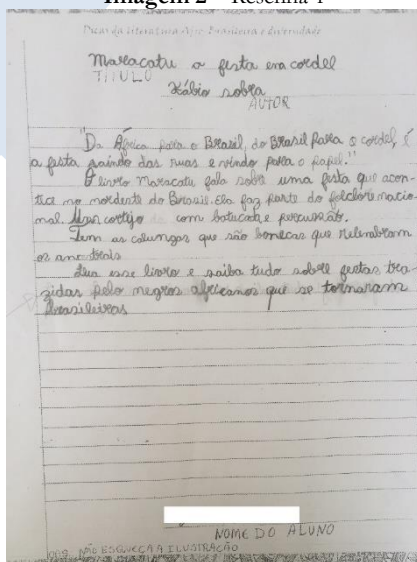 Imagem 2 – Resenha 1
Dicas da Literatura Afro-Brasileira e diversidade
Maracatu a festa em cordel
TITULO
Fábio sobra
AUTOR
"Da África para o Brasil, do Brasil para o cordel, é
a festa saindo das ruas e vindo para o papel."
O livro Maracatu fala sobre uma festa que acon-
tice no nordente do Brasil. Ela faz parte do folclore nacio-
nal. Um cortejo com batucada e percussão.
Tem as calungas que são bonecas que relembram
os ancetrais
Leia esse livro e saiba tudo sobre festas tra-
zidas pelo negros africanos que se tornaram
brasileiras
NOME DO ALUNO
OBS. NÃO ESQUEÇA A ILUSTRAÇÃO